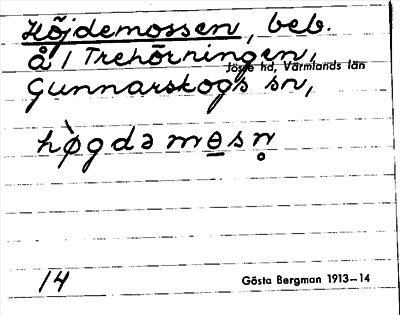 Höjdemossen, beb.
å 1 Trehörningen,
Jösse hd, Värmlands län
Gunnarskogs sn,
hø̀gdə mɵ̲sn̥
14
Gösta Bergman 1913–14